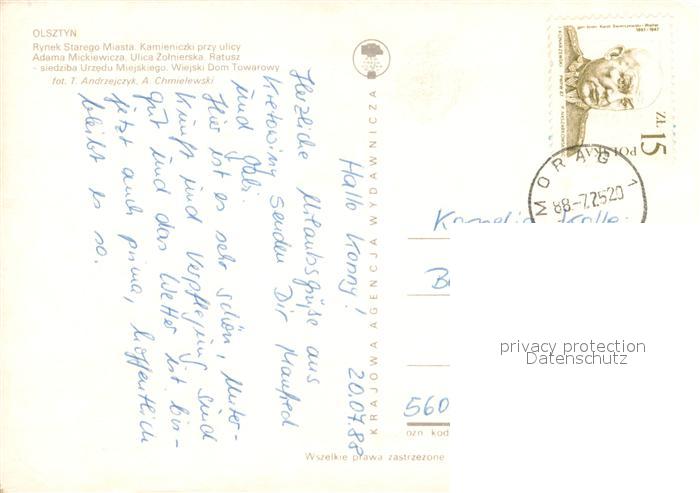 OLSZTYN
Rynek Starego Miasta. Kamieniczki przy ulicy
Adama Mickiewicza. Ulica Żołnierska. Ratusz
- siedziba Urzędu Miejskiego. Wiejski Dom Towarowy
fot. T. Andrzejczyk, A. Chmielewski
Hallo Konny! 20.07.88
Herzliche Urlaubsgrüße aus
Kretowiny senden Dir Manfred
und Gabi.
Hier ist es sehr schön, Unter-
kunft und Verpflegung sind
gut und das Wetter ist bis-
jetzt auch prima, hoffentlich
bleibt es so.
KRAJOWA AGENCJA WYDAWNICZA
POLSKA
ZŁ 15
MORĄG 1
88-7.2520
Kornelia
560
ozn kod
Wszelkie prawa zastrzeżone
privacy protection
Datenschutz